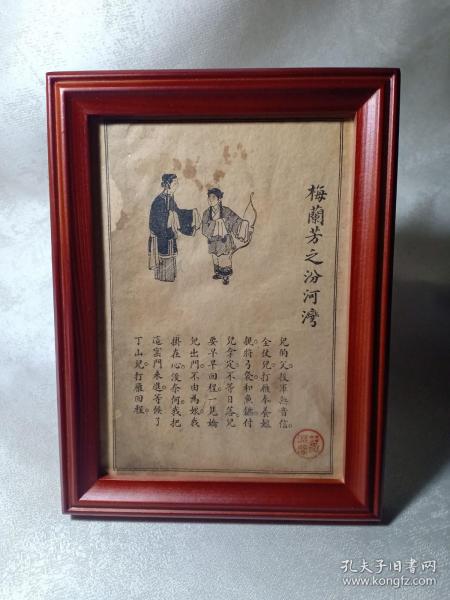 梅蘭芳之汾河灣
兒的父投軍無音信。
全仗兒打雁奉養娘
親。將弓袋和魚鏢付
兒拿定。不等日落兒
要早早回程。一見嬌
兒出門。不由為娘我
掛在心。沒奈何我把
窰門來進。等候了
丁山兒打雁回程。
孔夫子旧书网
www.kongfz.com